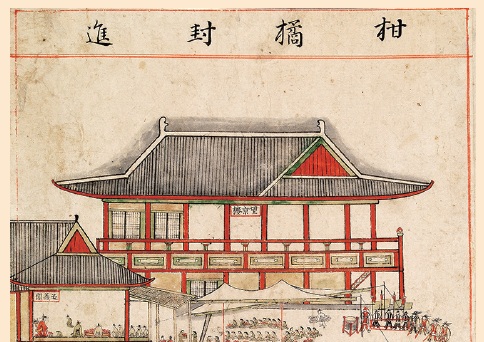 柑橘封進
望京樓